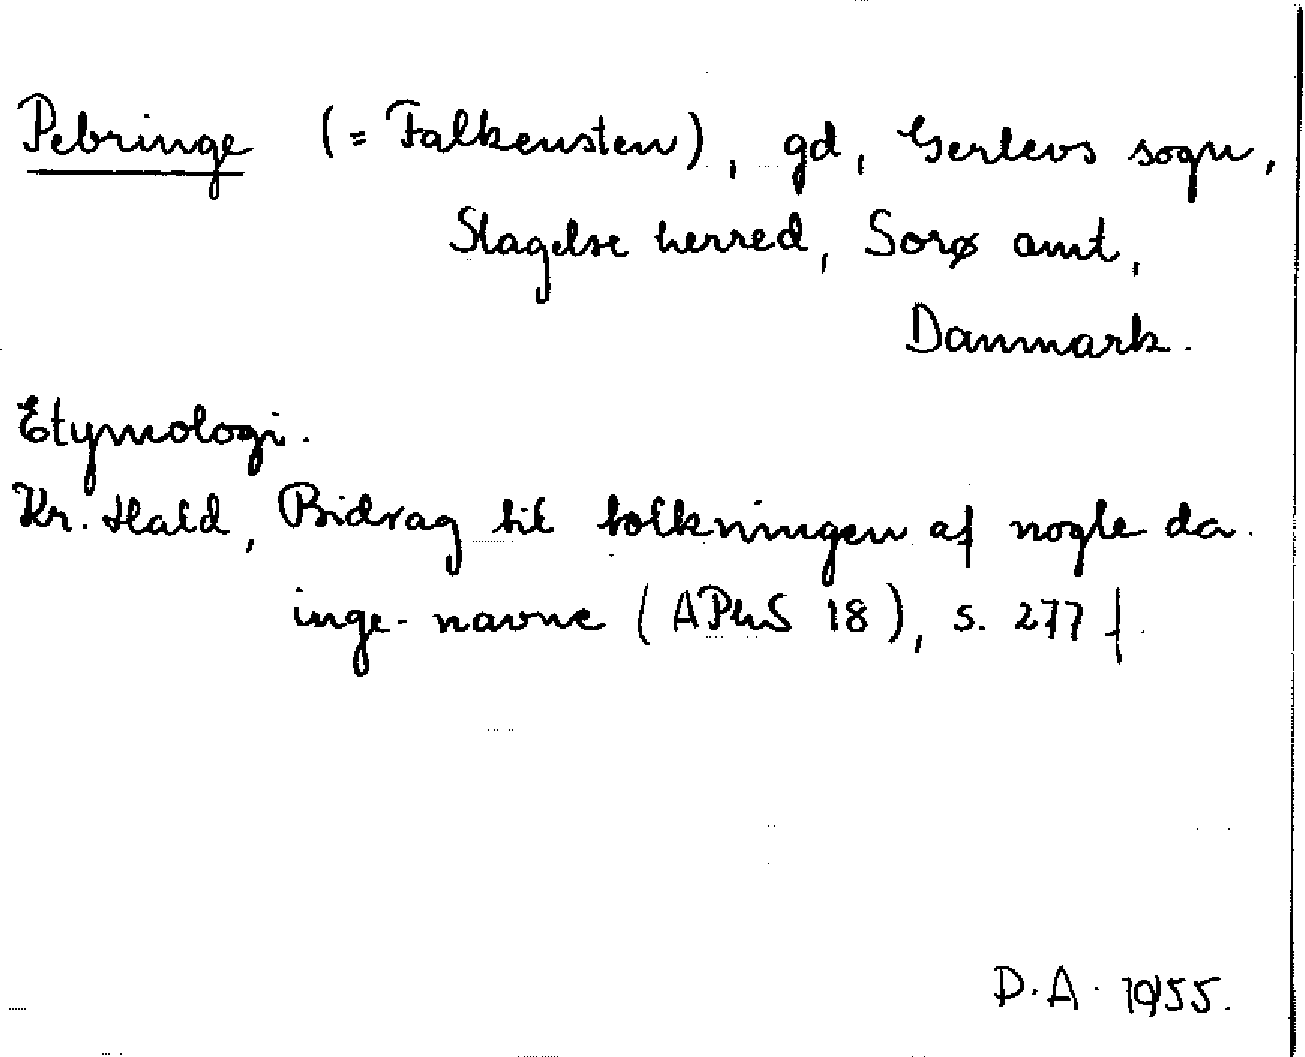 Pebringe (= Falkensten), gd, Gerlevs sogn,
Slagelse herred, Sorø amt,
Danmark.
Etymologi.
Kr. Hald, Bidrag til tolkningen af nogle da.
inge-navne (APhS 18), s. 277 f.
D.A. 1955.